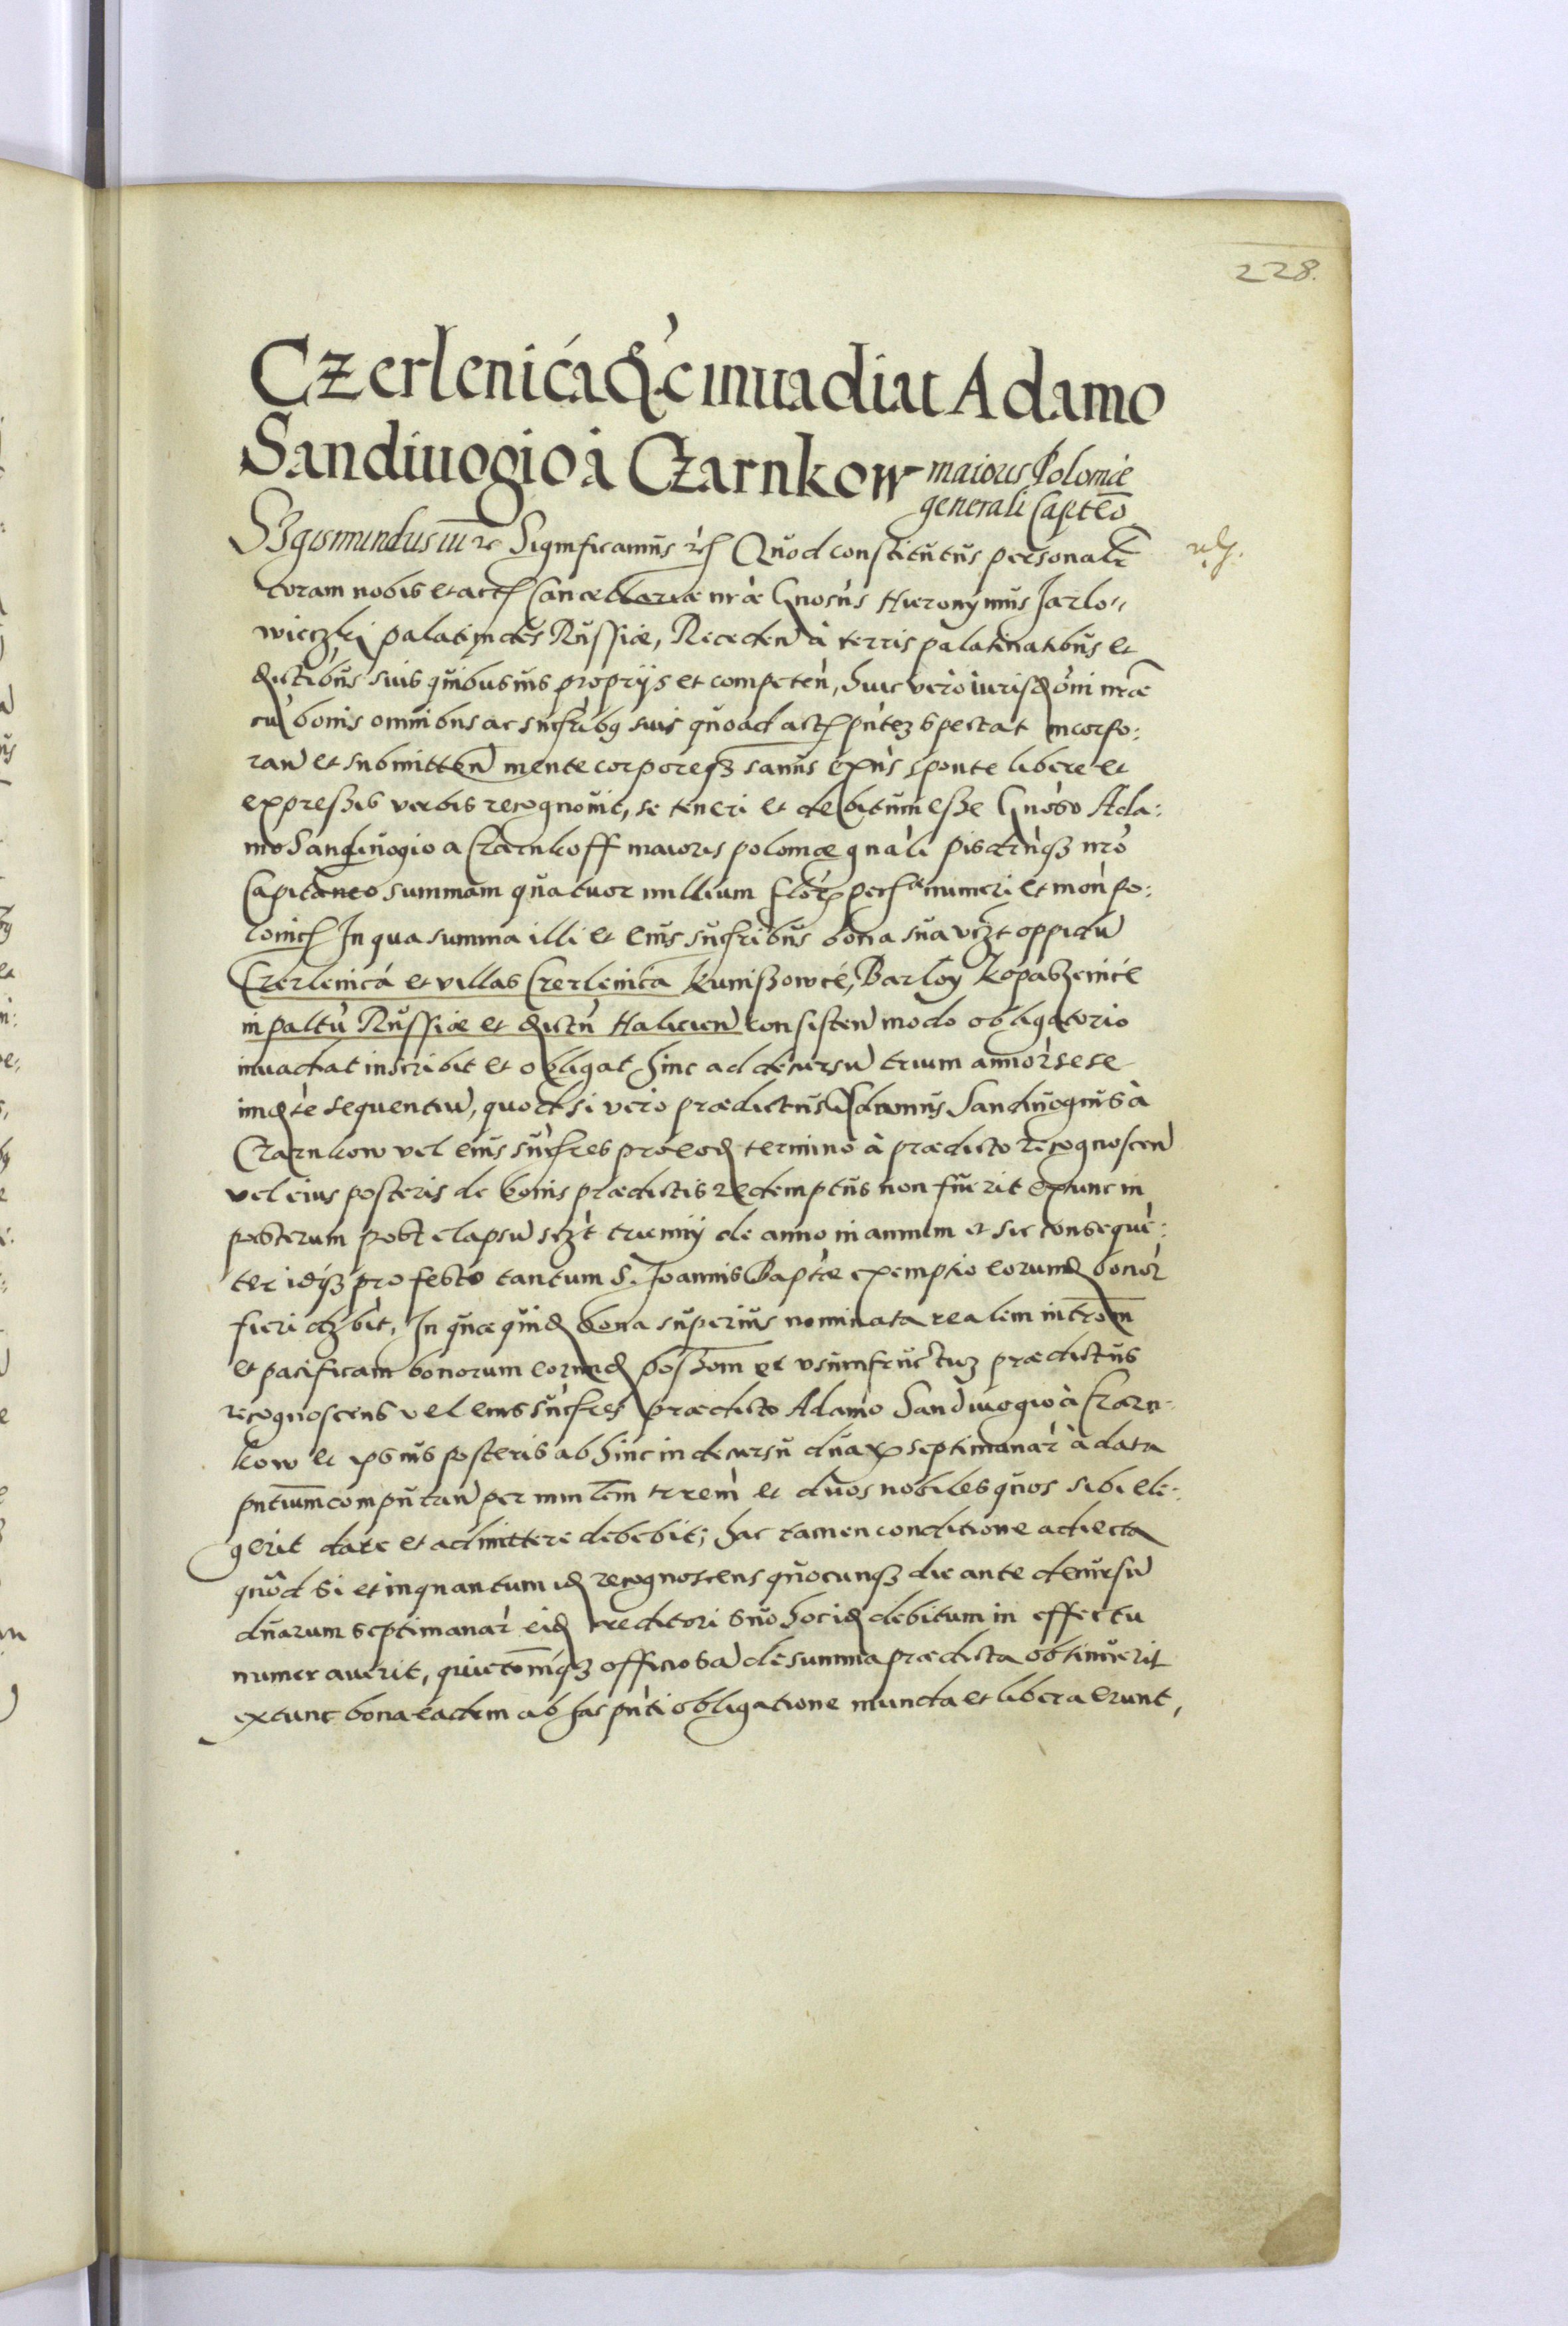 228.
Czerlenica etc inuadiat Adamo
Sandiuogio à Czarnkow maioris Poloniæ
generali Capteo
Sigismundus iii etc Significamus etc Quod constitutus personalr
coram nobis et act Cancellariæ nræ Gnosus Hieronymus Jarlo„
wieczki palatinides Russiæ, Receden à terris palatinatibus et
districtibus suis quibusuis proprijs et competen, huic vero iurisdoni nræ
cu bonis omnibus ac sucribq suis quoad act pntez spectat incorpo:
ran et submitten mente corporeqz sanus exns sponte libere et
expressis verbis recognouit, se teneri et debitum esse Gnoso Ada:
mo Sandiuogio a Czarnkoff maioris poloniæ gnali Pisdrnqz nro
Capitaneo summam quatuor millium flor pecu numeri et mon po:
lonic In qua summa illi et eius sucribus bona sua vzt oppidu
Czerlenica et villas Czerlenica Kunissowce, Barloy Kopaszenice
in paltu Russiæ et distu Halicien consisten modo obligatorio
inuadiat inscribit et obligat hinc ad decursu trium annor sese
imdte sequentiu, quod si vero prædictus Adamus Sandiuogius à
Czarnkow vel eius sucres pro eod termino à prædicto recognoscen
vel eius posteris de bonis prædictis redemptus non fuerit extunc in
posterum post elapsu sczt triennij de anno in annum et sic conseque:
ter idqz pro festo tantum S. Joannis Baptæ exemptio eorumd bonor
fieri dzbit, In quæ quid bona superius nominata realem introm
et pacificam bonorum eorumd possom et vsumfructuz prædictus
recognoscens vel eius sucres prædicto Adamo Sandiuogio à Czarn-
kow et ipsius posteris ab hinc in decursu duar septimanar à data
pntium computan per minlem trrem et duos nobiles quos sibi ele:
gerit dare et admittere debebit; hac tamen conditione adiecta
quod si et inquantum id recognoscens quocunqz die ante decursu
duarum septimanar eid creditori suo hocid debitum in effectu
numerauerit, quietomqz officiosa de summa prædicta obtinuerit
extunc bona eadem ab hac pnti obligatione munda et libera erunt,